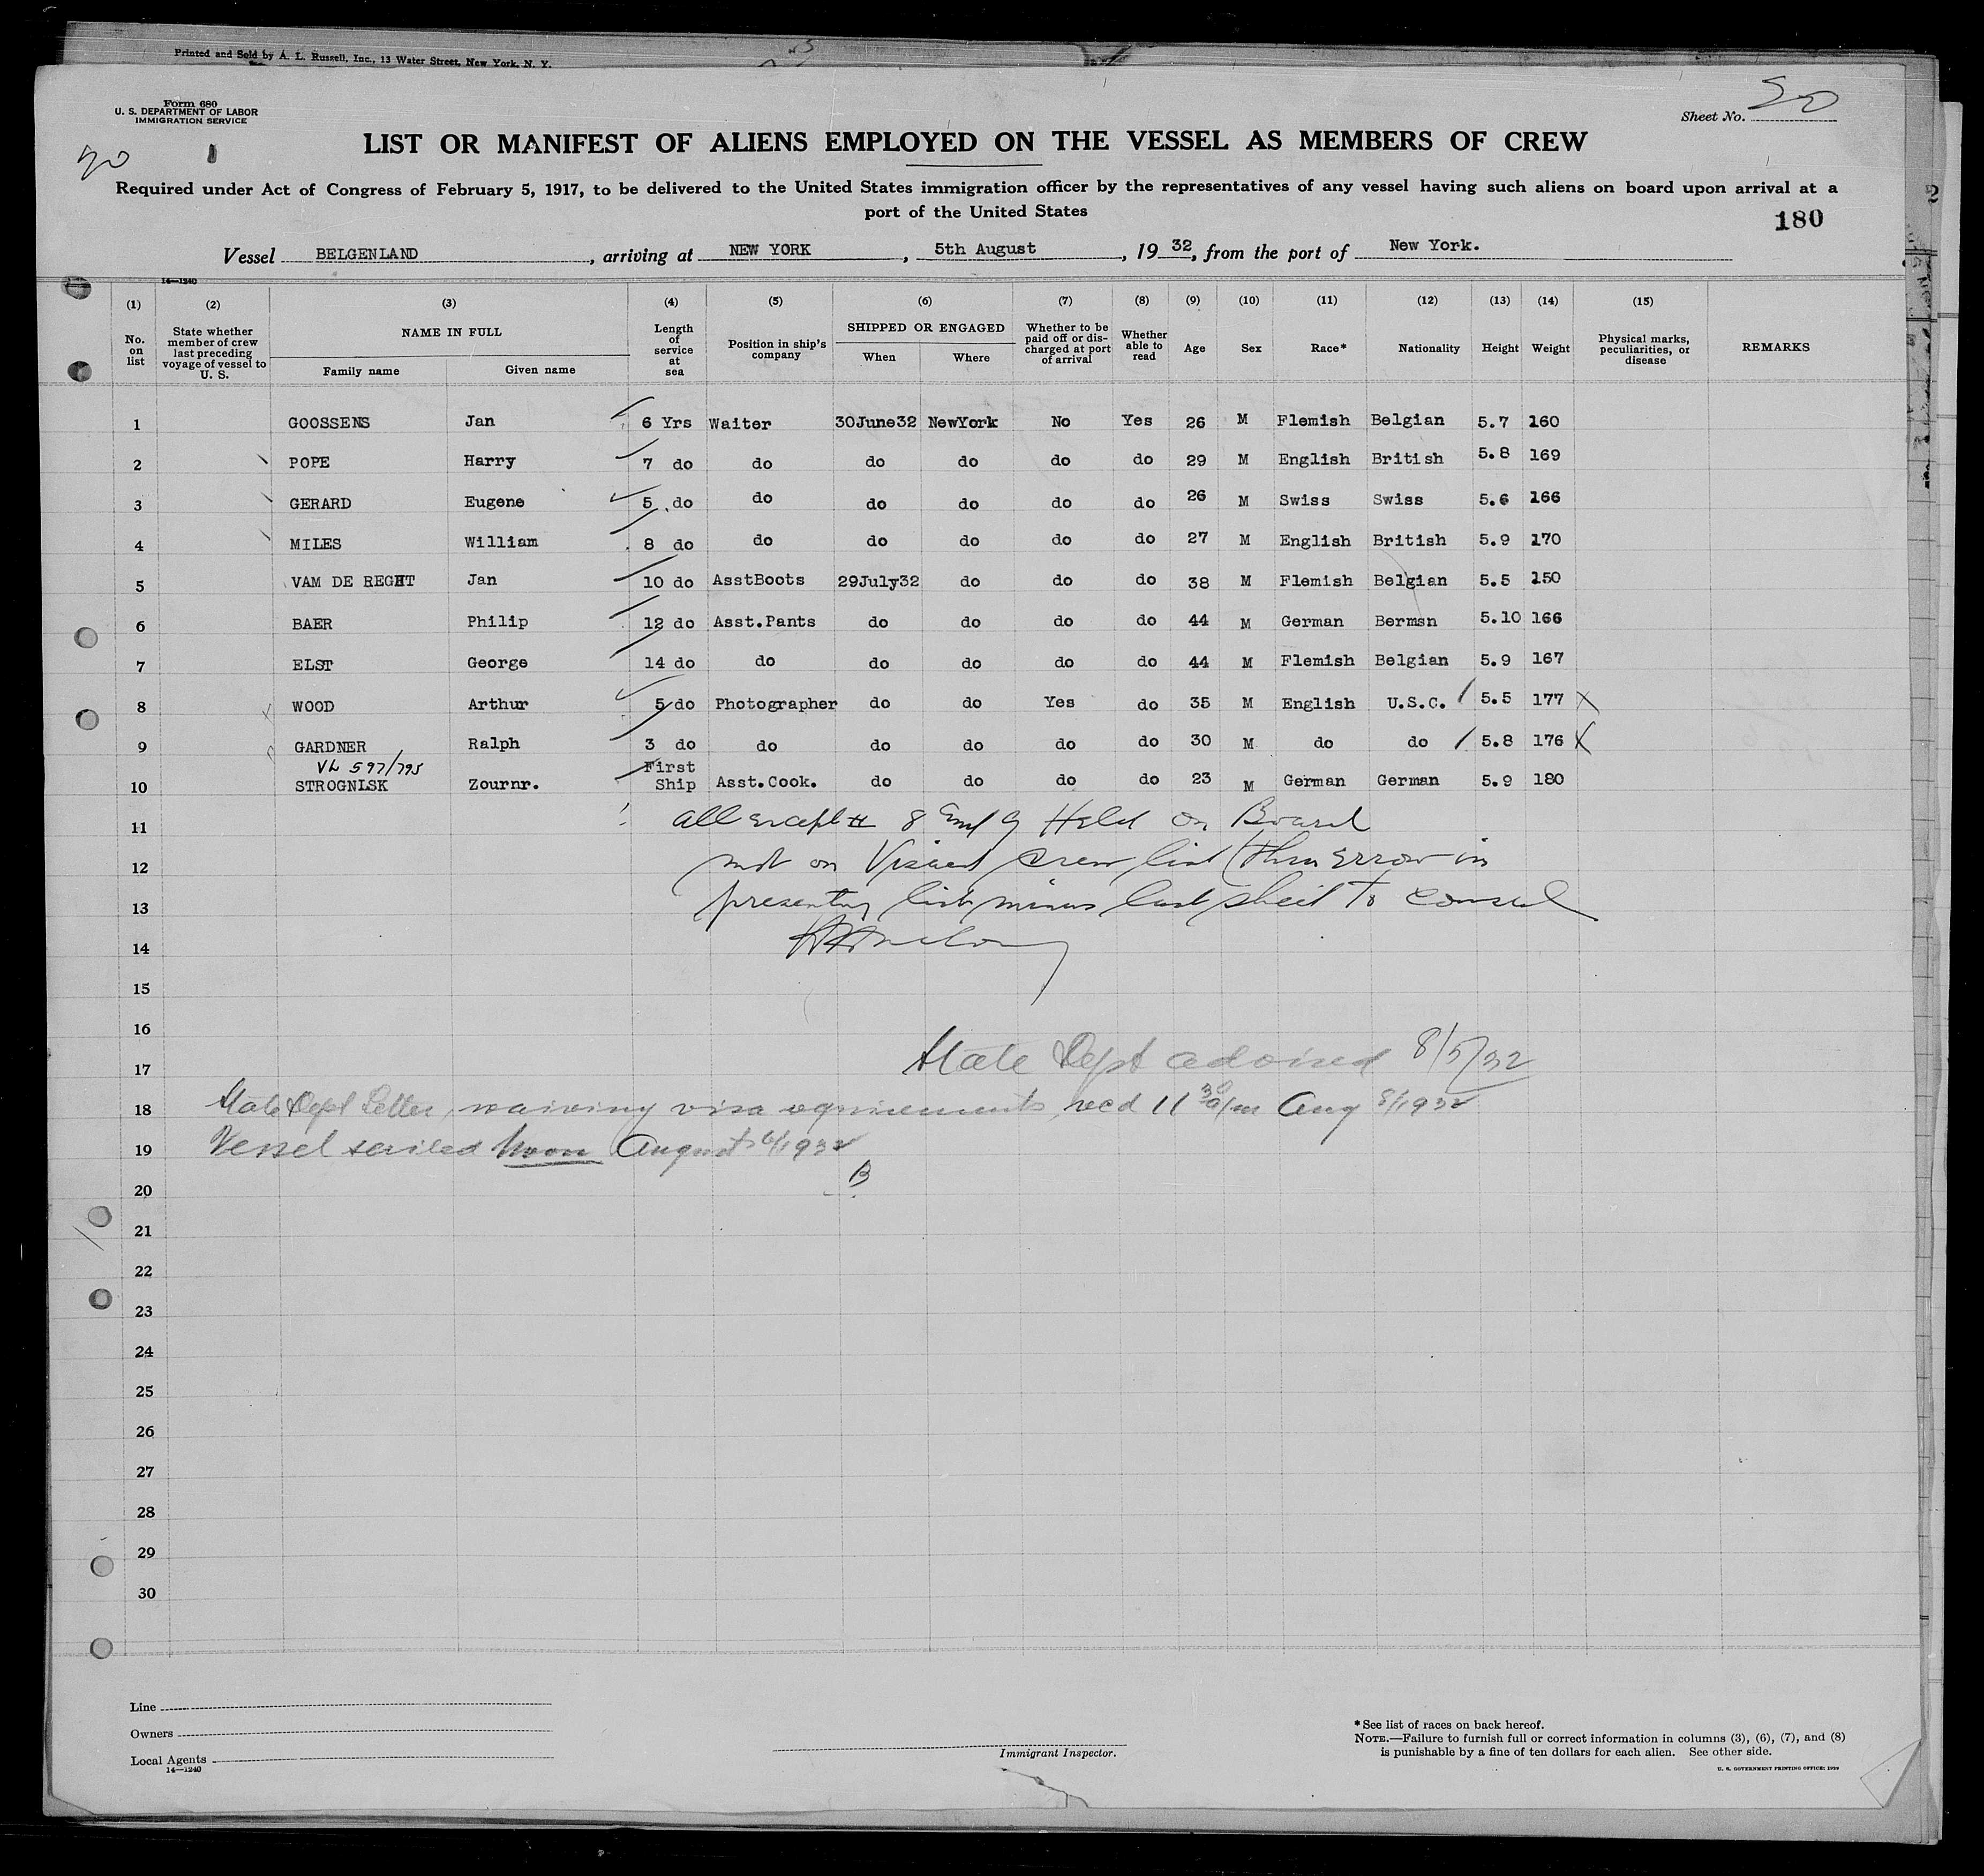 Printed and Sold by A. L. Russell, Inc., 13 Water Street, New York, N. Y.
Form 680
U. S. DEPARTMENT OF LABOR
IMMIGRATION SERVICE
Sheet No.
LIST OR MANIFEST OF ALIENS EMPLOYED ON THE VESSEL AS MEMBERS OF CREW
Required under Act of Congress of February 5, 1917, to be delivered to the United States immigration officer by the representatives of any vessel having such aliens on board upon arrival at a
port of the United States
180
Vessel BELGENLAND, arriving at NEW YORK, 5th August, 1932, from the port of New York.
14—1240
(1) (2) (3) (4) (5) (6) (7) (8) (9) (10) (11) (12) (13) (14) (15)
No. on list State whether member of crew last preceding voyage of vessel to U. S. NAME IN FULL Family name Given name Length of service at sea Position in ship's company SHIPPED OR ENGAGED When Where Whether to be paid off or discharged at port of arrival Whether able to read Age Sex Race* Nationality Height Weight Physical marks, peculiarities, or disease REMARKS
1 GOOSSENS Jan 6 Yrs Waiter 30June32 NewYork No Yes 26 M Flemish Belgian 5.7 160
2 POPE Harry 7 do do do do do do 29 M English British 5.8 169
3 GERARD Eugene 5 do do do do do do 26 M Swiss Swiss 5.6 166
4 MILES William 8 do do do do do do 27 M English British 5.9 170
5 VAM DE REGHT Jan 10 do AsstBoots 29July32 do do do 38 M Flemish Belgian 5.5 150
6 BAER Philip 12 do Asst.Pants do do do do 44 M German Bermsn 5.10 166
7 ELST George 14 do do do do do do 44 M Flemish Belgian 5.9 167
8 WOOD Arthur 5 do Photographer do do Yes do 35 M English U.S.C. 5.5 177 X
9 GARDNER Ralph 3 do do do do do do 30 M do do 5.8 176 X
VL 597/795
10 STROGNLSK Zournr. First Ship Asst.Cook. do do do do 23 M German German 5.9 180
11 All except # 8 and 9 Held on Board
12 not on Visaed crew list (thru error in
13 presenting list minus last sheet to Consul
14
15
16
17 State Dept advised 8/5/32
18 State Dept Letter, waiving visa requirements, rec'd 11 30 a/m Aug 8/1932
19 Vessel sailed Noon August 6/1932
20 B
21
22
23
24
25
26
27
28
29
30
Line
Owners
Local Agents
14—1240
Immigrant Inspector.
*See list of races on back hereof.
NOTE.—Failure to furnish full or correct information in columns (3), (6), (7), and (8)
is punishable by a fine of ten dollars for each alien. See other side.